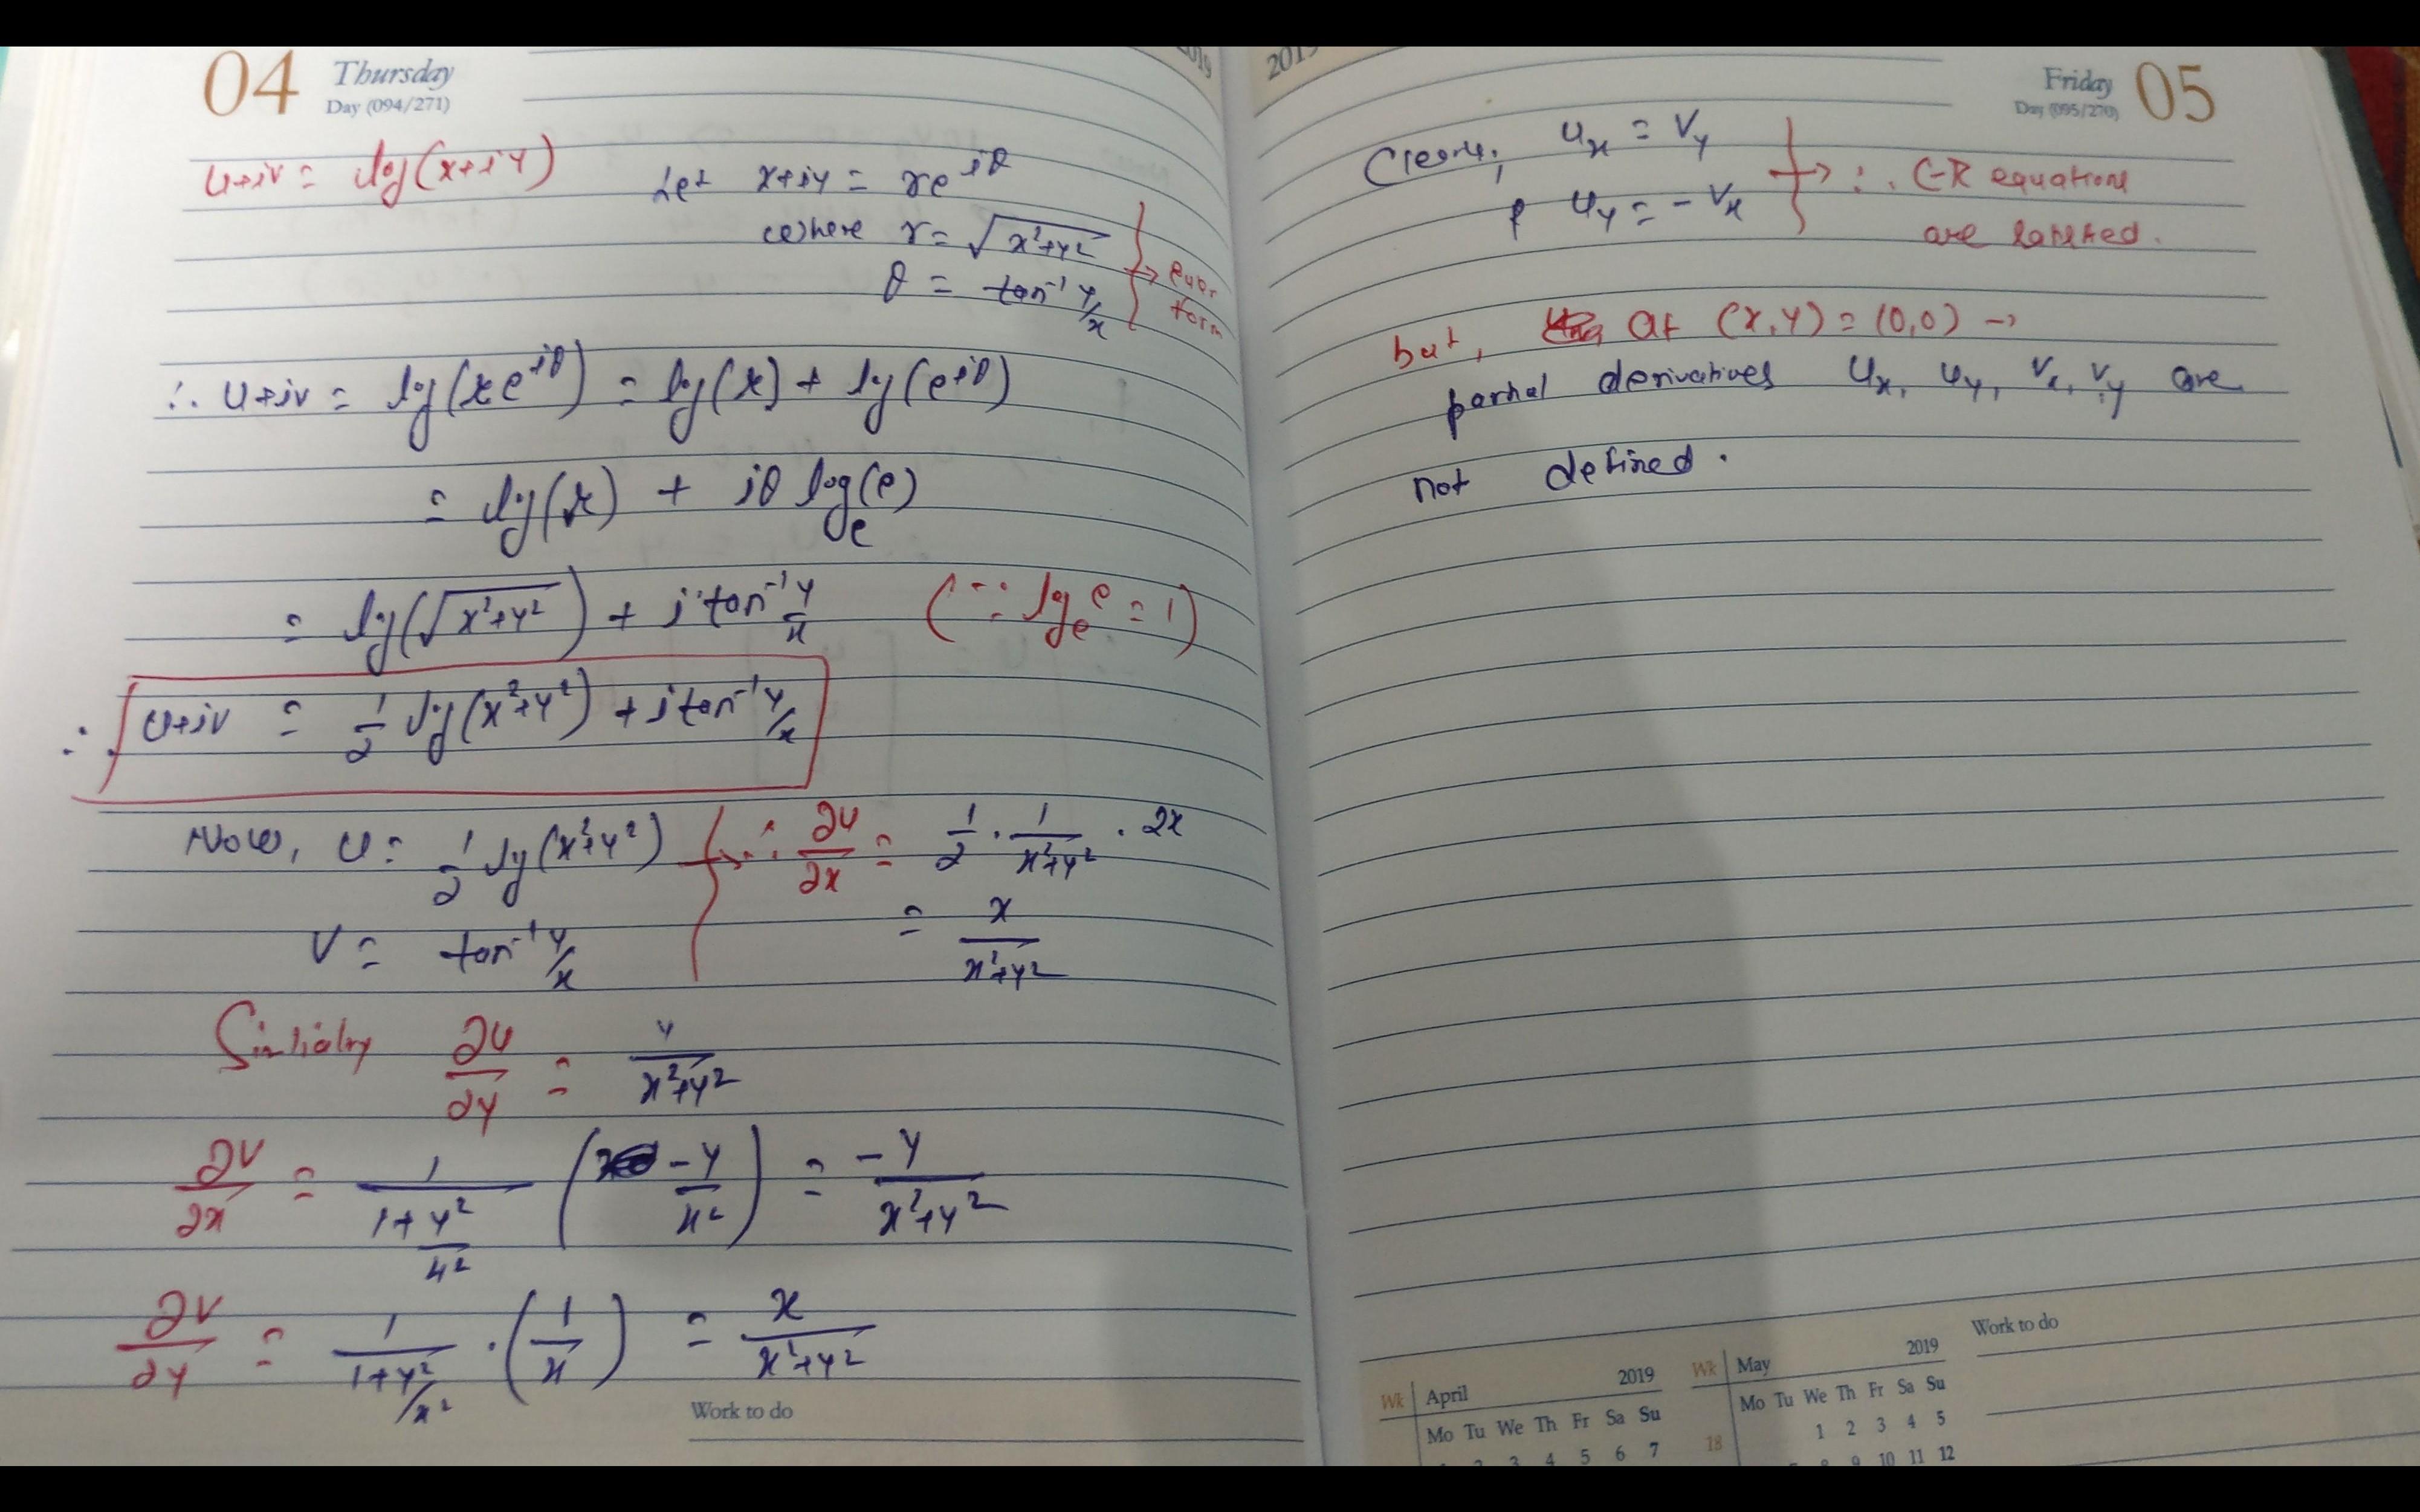 04 Thursday
Day (094/271)
u+iv = log(x+iy)
Let x+iy = re^{iθ}
where r = √(x²+y²)
θ = tan⁻¹ y/x
→ form
∴ u+iv = log(re^{iθ}) = log(r) + log(e^{iθ})
= log(r) + iθ log_e(e)
= log(√(x²+y²)) + i tan⁻¹ y/x (∵ log_e e = 1)
∴ u+iv = 1/2 log(x²+y²) + i tan⁻¹ y/x
Now, u = 1/2 log(x²+y²) → ∴ ∂u/∂x = 1/2 · 1/(x²+y²) · 2x
v = tan⁻¹ y/x
= x/(x²+y²)
∂u/∂y = y/(x²+y²)
∂v/∂x = 1/(1+y²/x²) (-y/x²) = -y/(x²+y²)
∂v/∂y = 1/(1+y²/x²) · (1/x) = x/(x²+y²)
Work to do
2019
Friday 05
Day (095/270)
Clearly, u_x = v_y
& u_y = -v_x → ∴ C-R equations
are satisfied.
but, at (x,y) = (0,0) →
partial derivatives u_x, u_y, v_x, v_y are
not defined.
Wk April 2019
Mo Tu We Th Fr Sa Su
1 2 3 4 5 6 7
Wk May 2019
Mo Tu We Th Fr Sa Su
18 1 2 3 4 5
7 8 9 10 11 12
Work to do